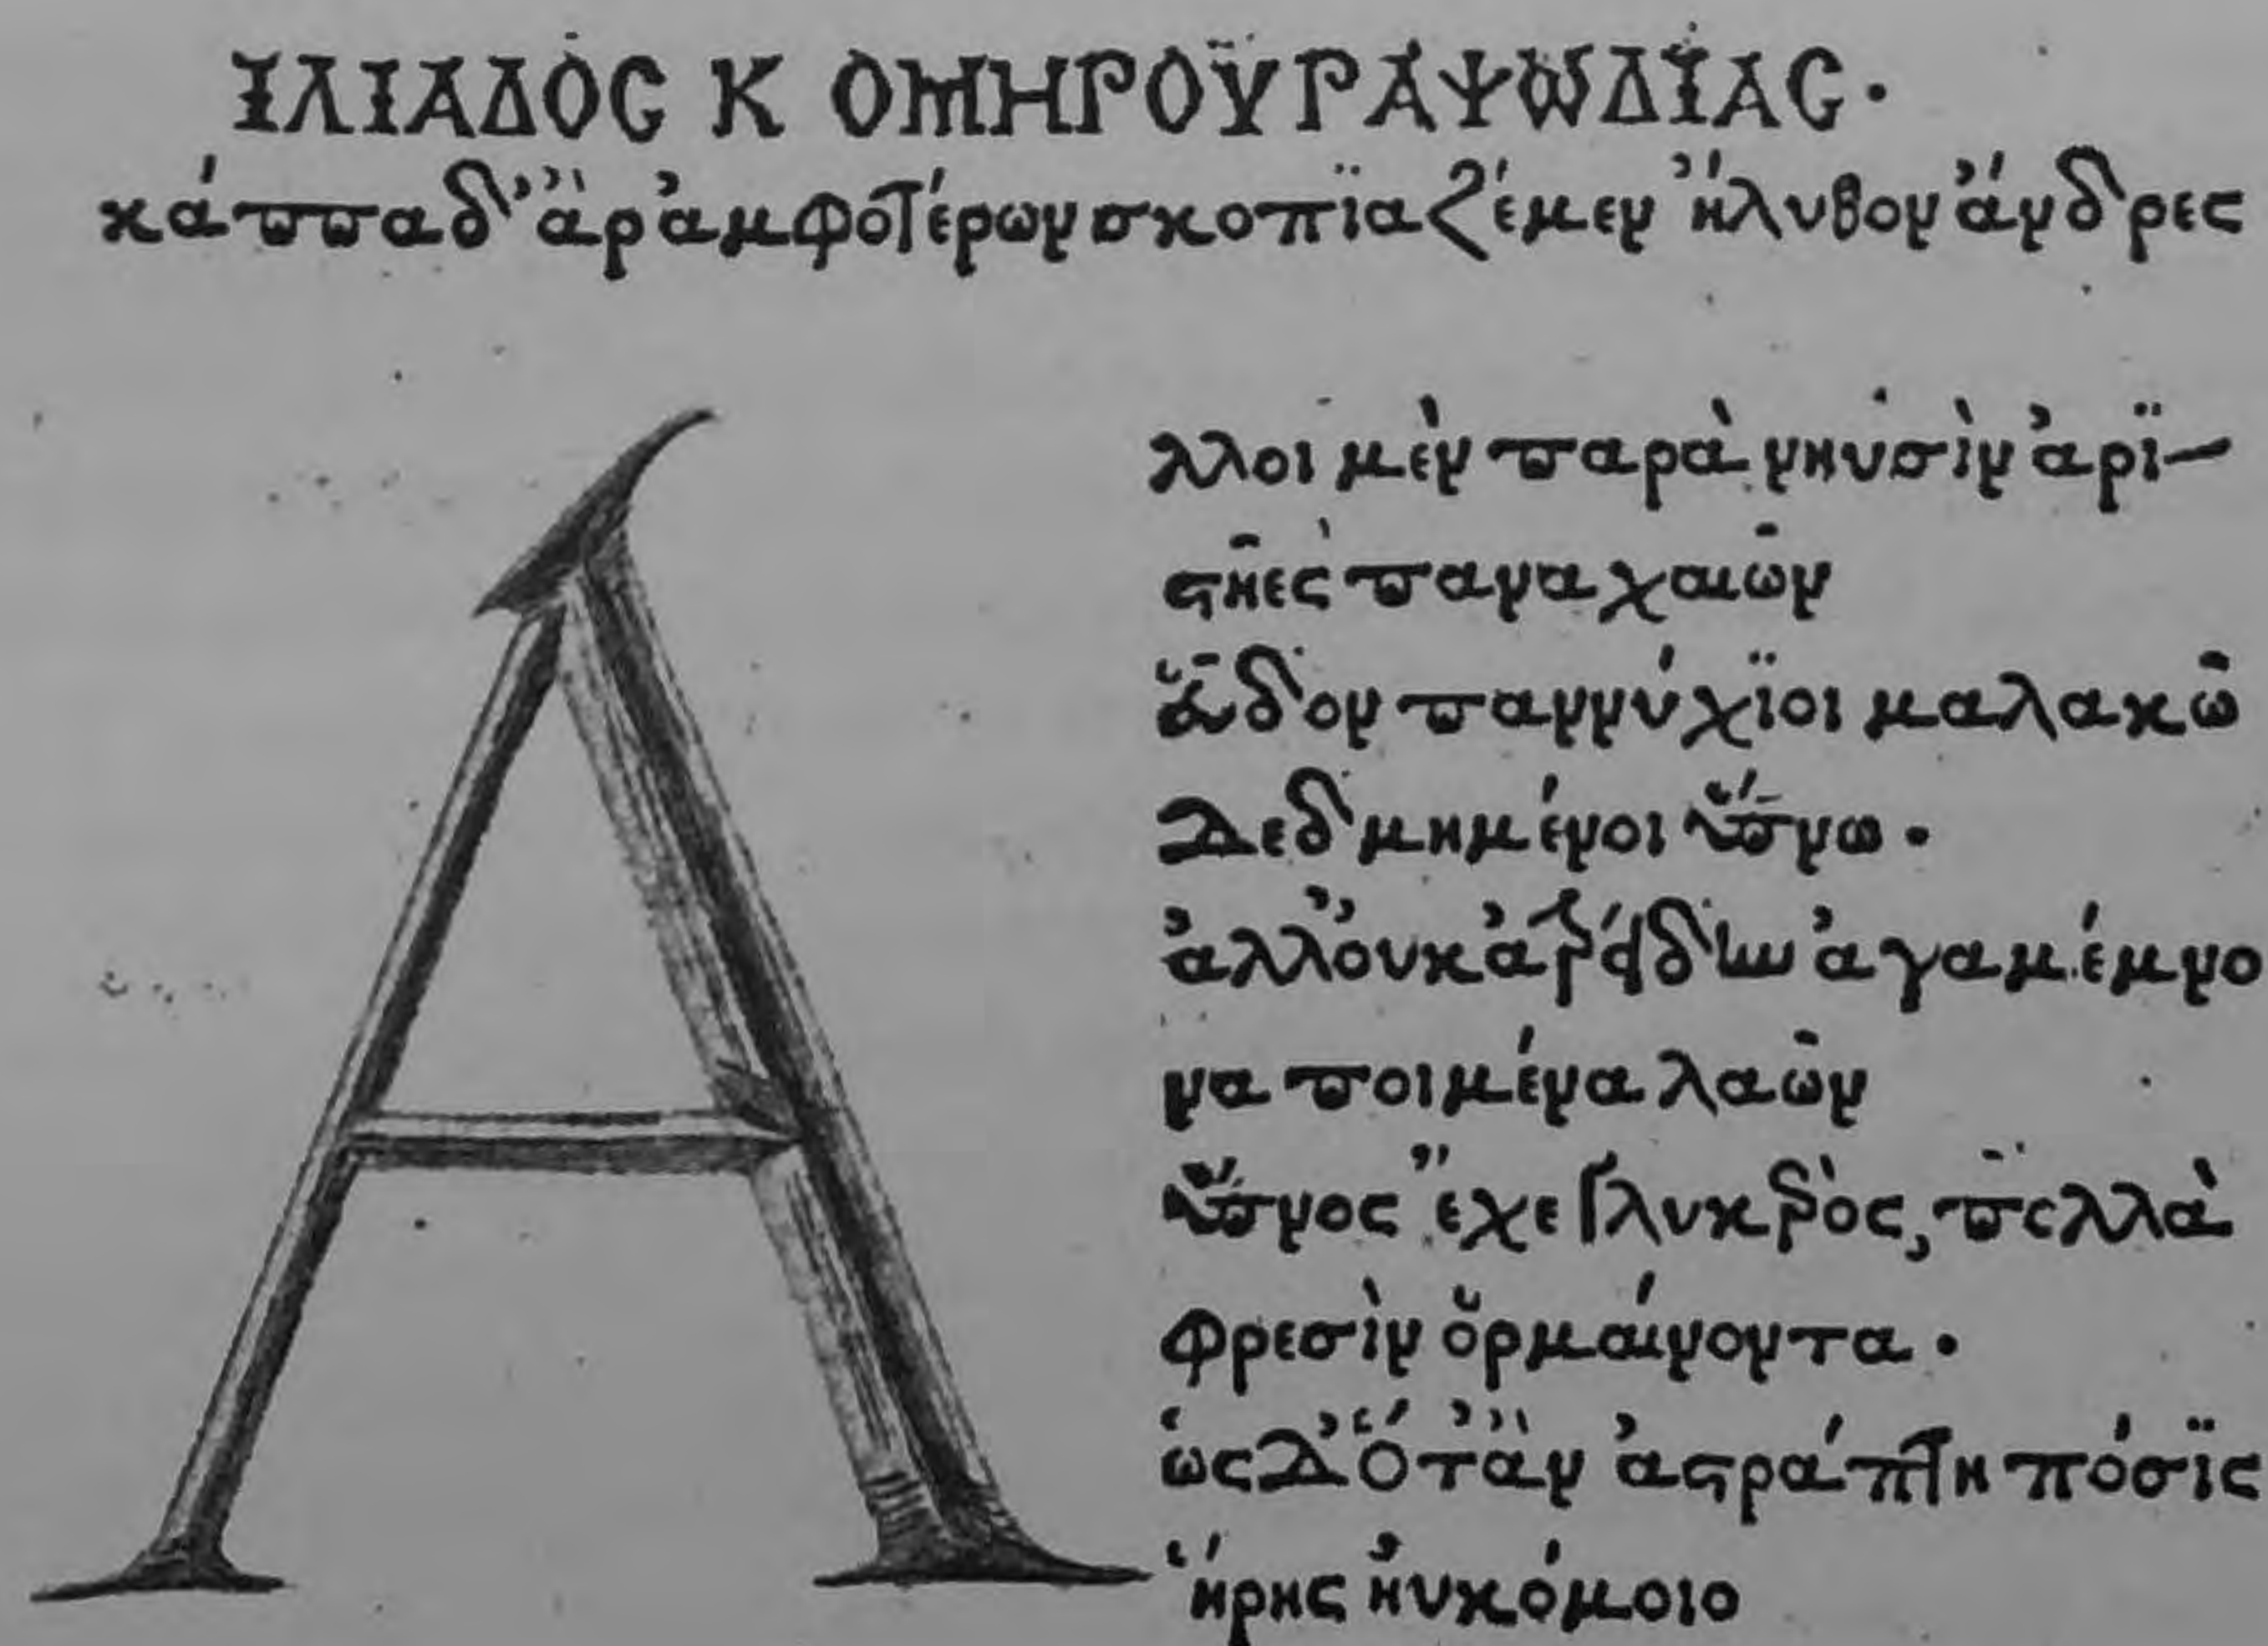 ΙΛΙΑΔΟC Κ ΟΜΗΡΟΥ ΡΑΨΩΔΪΑC·
κάππαδ' ἂρ ἀμφοτέρων σκοπϊαζέμεν ἤλυθον ἄνδρες
Α
λλοι μὲν παρὰ νηυσὶν ἀρϊ-
στῆες παναχαιῶν
εὗδον παννύχϊοι μαλακῶ
Δεδμημένοι ὕπνω·
ἀλλ' οὐκ ἀτρείδην ἀγαμέμνο
να ποιμένα λαῶν
ὕπνος ἔχε γλυκερὸς, πολλὰ
φρεσὶν ὁρμαίνοντα·
ὡς Δ' ὅτ' ἂν ἀστράπτη πόσϊς
ἥρης ἠυκόμοιο